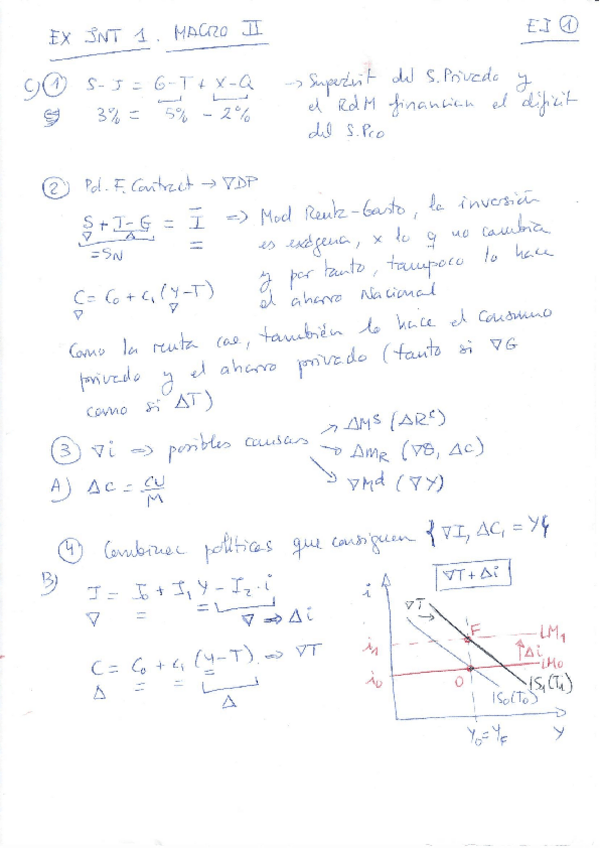 EX INT 1. MACRO II
EJ ①
C) ① S-I = G-T + X-Q → Superávit del S. Privado y
3% = 5% - 2% el RdM financian el déficit
del S. Pco
② Pol. F. Contract → ∇DP
S + T-G = I ⇒ Mod Renta-Gasto, la inversión
∇ Δ = es exógena, x lo q no cambia
=SN y por tanto, tampoco lo hace
C = C0 + c1 (Y-T) el ahorro Nacional
∇ ∇
Como la renta cae, también lo hace el consumo
privado y el ahorro privado (tanto si ∇G
como si ΔT)
③ ∇i ⇒ posibles causas → ΔMS (ΔRC)
→ ΔMR (∇θ, ΔC)
→ ∇Md (∇Y)
A) ΔC = CU/M
④ Combinac políticas que consiguen {∇I, ΔC, = Y}
B) I = I0 + I1 Y - I2·i
∇ = = ∇ ⇒ Δi
C = C0 + c1 (Y-T) ⇒ ∇T
Δ = = = Δ
∇T + Δi
i
∇T →
F
LM1
i1
Δi
i0
LM0
0
IS1(T1)
IS0(T0)
Y0 = YF
Y